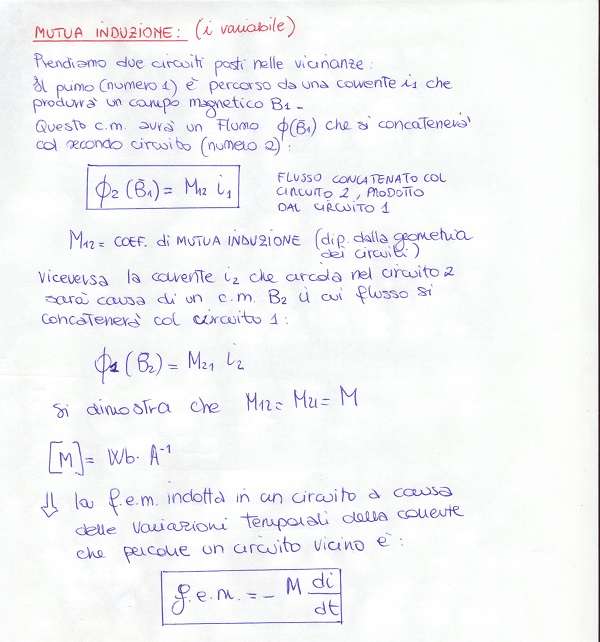 MUTUA INDUZIONE: (i variabile)
Prendiamo due circuiti posti nelle vicinanze:
Il primo (numero 1) è percorso da una corrente i1 che
produrrà un campo magnetico B1-
Questo c.m. avrà un Flusso ϕ(B̄1) che si concatenerà
col secondo circuito (numero 2):
ϕ2 (B̄1) = M12 i1
FLUSSO CONCATENATO COL
CIRCUITO 2, PRODOTTO
DAL CIRCUITO 1
M12 = COEF. di MUTUA INDUZIONE (dip. dalla geometria
dei circuiti)
Viceversa la corrente i2 che circola nel circuito 2
sarà causa di un c.m. B2 il cui flusso si
concatenerà col circuito 1:
ϕ1 (B̄2) = M21 i2
si dimostra che M12 = M21 = M
[M] = Wb · A⁻¹
⇓ la f.e.m. indotta in un circuito a causa
delle variazioni temporali della corrente
che percorre un circuito vicino è:
f.e.m. = - M di/dt